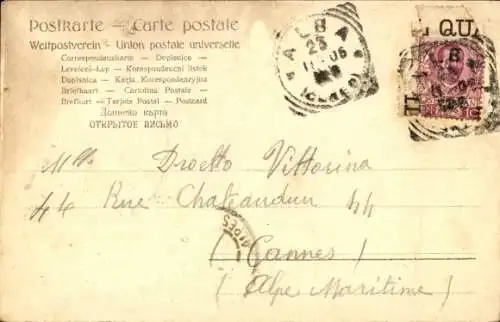 Postkarte — Carte postale
Weltpostverein — Union postale universelle
Correspondenzkarte — Dopisnice —
Levelező-Lap — Korespondenční lístek
Dopisnica — Karta Korespondencyjna
Briefkaart — Cartolina Postale —
Brefkort — Tarjeta Postal — Postcard
Дописна карта
ОТКРЫТОЕ ПИСЬМО
ALBA
23
(CUNEO)
QU
Mlle Droetto Vittorina
44 Rue Chateaudun 44
Cannes
(Alpe Maritime)